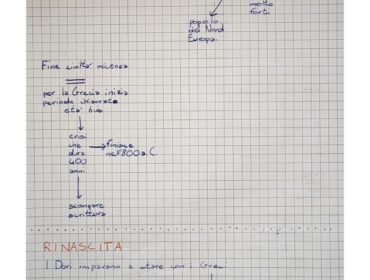 molto
forti.
popolo
del Nord
Europa.
Fine civiltà micenea
per la Grecia inizia
periodo chiamato
età buia
crisi
che
dura
400
anni
finisce
nell'800 a.C.
scompare
scrittura
RINASCITA
I Dori imparano a stare con i Greci